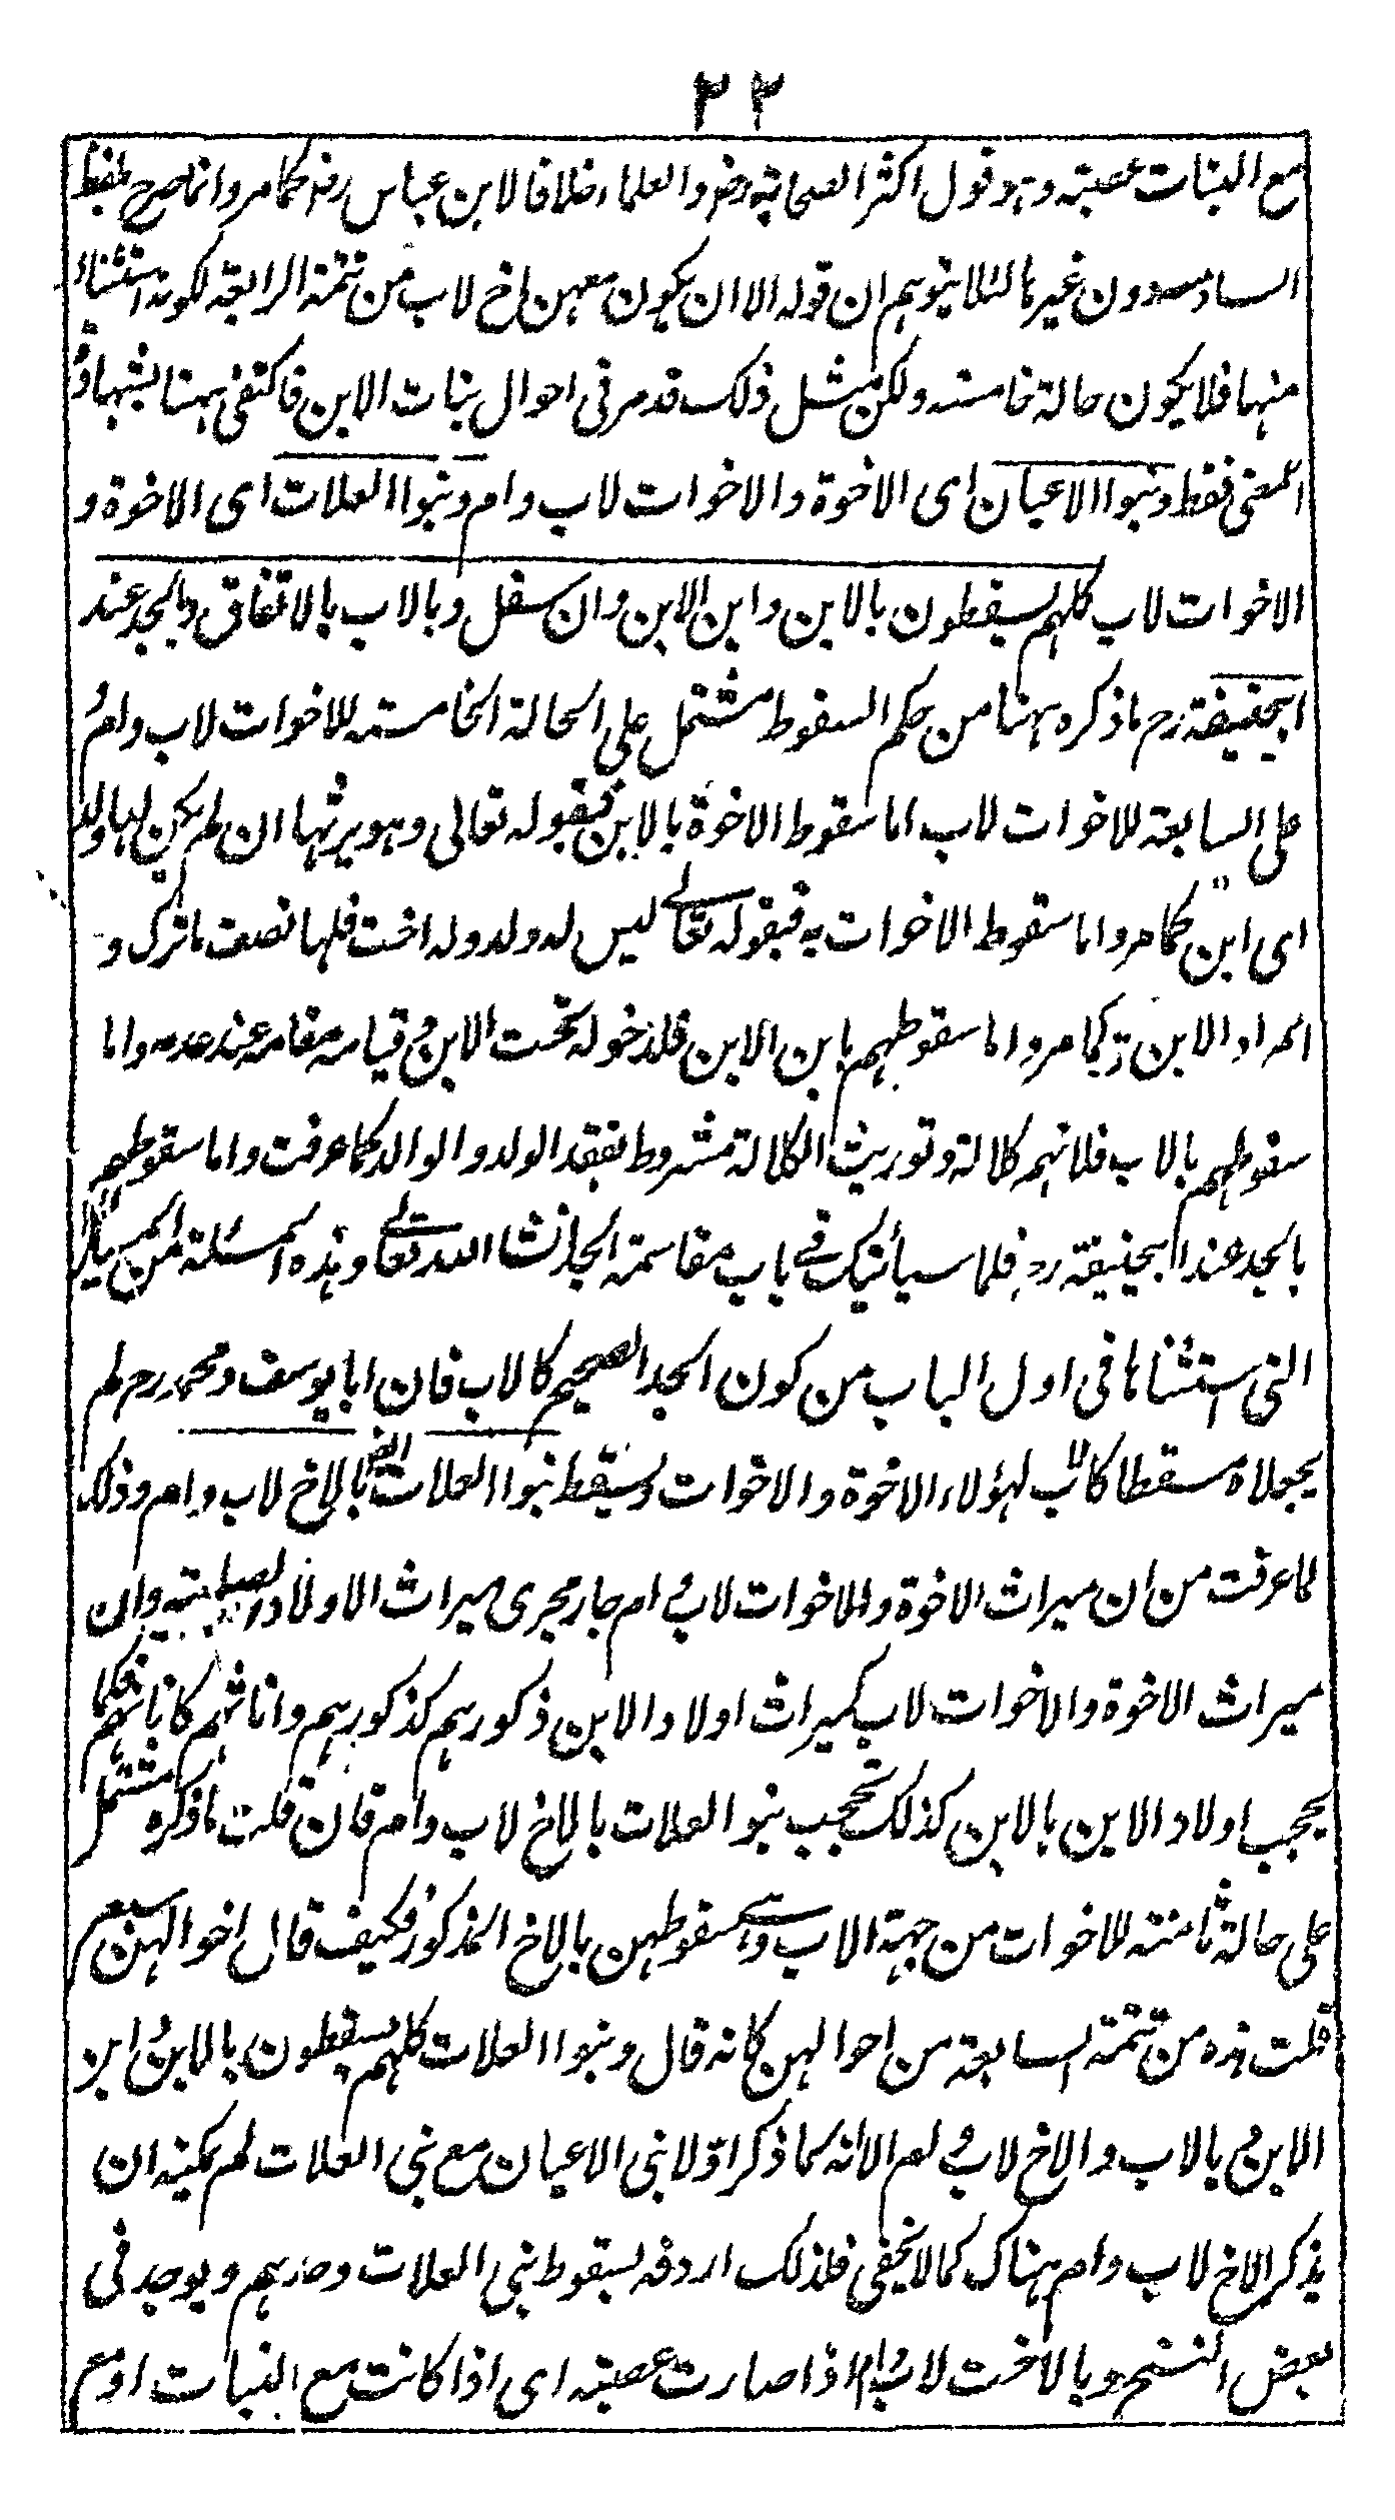 ٣٣
مع البنات عصبة وهو قول اكثر الصحابة رضـ والعلماء خلافا لابن عباس رضـ كما مر وانما صرح بلفظ
السادسة دون غيرها لئلا يتوهم ان قوله الا ان يكون معهن اخ لاب من تتمة الرابعة لكونه استثناء
منها فلا يكون حالة خامسة ولكن مثل ذلك قد مر فى احوال بنات الابن فاكتفى ههنا بشهادة
المعنى فقط وبنوا الاعيان اى الاخوة والاخوات لاب وام وبنوا العلات اى الاخوة و
الاخوات لاب كلهم يسقطون بالابن وابن الابن وان سفل وبالاب بالاتفاق وبالجد عند
ابيحنيفة رح ما ذكره ههنا من حكم السقوط مشتمل على الحالة الخامسة للاخوات لاب وام و
على السابعة للاخوات لاب اما سقوط الاخوة بالابن فبقوله تعالى وهو يرثها ان لم يكن لها ولد
اى ابن كما مر واما سقوط الاخوات به فبقوله تعالى ليس له ولد وله اخت فلها نصف ما ترك و
المراد الابن كما مر واما سقوطهم بابن الابن فلدخوله تحت الابن و قيامه مقامه عند عدمه واما
سقوطهم بالاب فلانهم كلالة وتوريث الكلالة مشروط بفقد الولد والوالد كما عرفت واما سقوطهم
بالجد عند ابيحنيفة رح فلما سيأتيك فى باب مقاسمة الجد انشاء الله تعالى وهذه المسئلة من المسائل
التى استثناها فى اول الباب من كون الجد الصحيح كالاب فان ابا يوسف ومحمد رح لم
يجعلاه مسقطا كالاب لهؤلاء الاخوة والاخوات ويسقط بنوا العلات ايضا بالاخ لاب وام وذلك
لما عرفت من ان ميراث الاخوة والاخوات لاب و ام جار مجرى ميراث الاولاد الصلبية وان
ميراث الاخوة والاخوات لاب كميراث اولاد الابن ذكورهم كذكورهم واناثهم كاناثهم فكما
يحجب اولاد الابن بالابن كذلك يحجب بنوا العلات بالاخ لاب وام فان قلت ما ذكره مشتمل
على حالة ثامنة للاخوات من جهة الاب وهى سقوطهن بالاخ المذكور فكيف قال احوالهن سبع
قلت هذه من تتمة السابعة من احوالهن كانه قال وبنوا العلات كلهم يسقطون بالابن و ابن
الابن و بالاب والاخ لاب و ام الا انه لما ذكر اولا بنى الاعيان مع بنى العلات لم يمكنه ان
يذكر الاخ لاب وام هناك كما لا يخفى فلذلك اردفه بسقوط بنى العلات وحدهم ويوجد فى
بعض النسخ وبالاخت لاب و ام اذا صارت عصبة اى اذا كانت مع البنات او مع